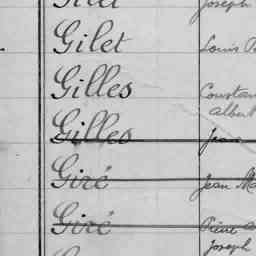 Joseph
Gilet Louis
Gilles
Albert
Gilles Jean
Giré Jean
Giré Pierre
Joseph